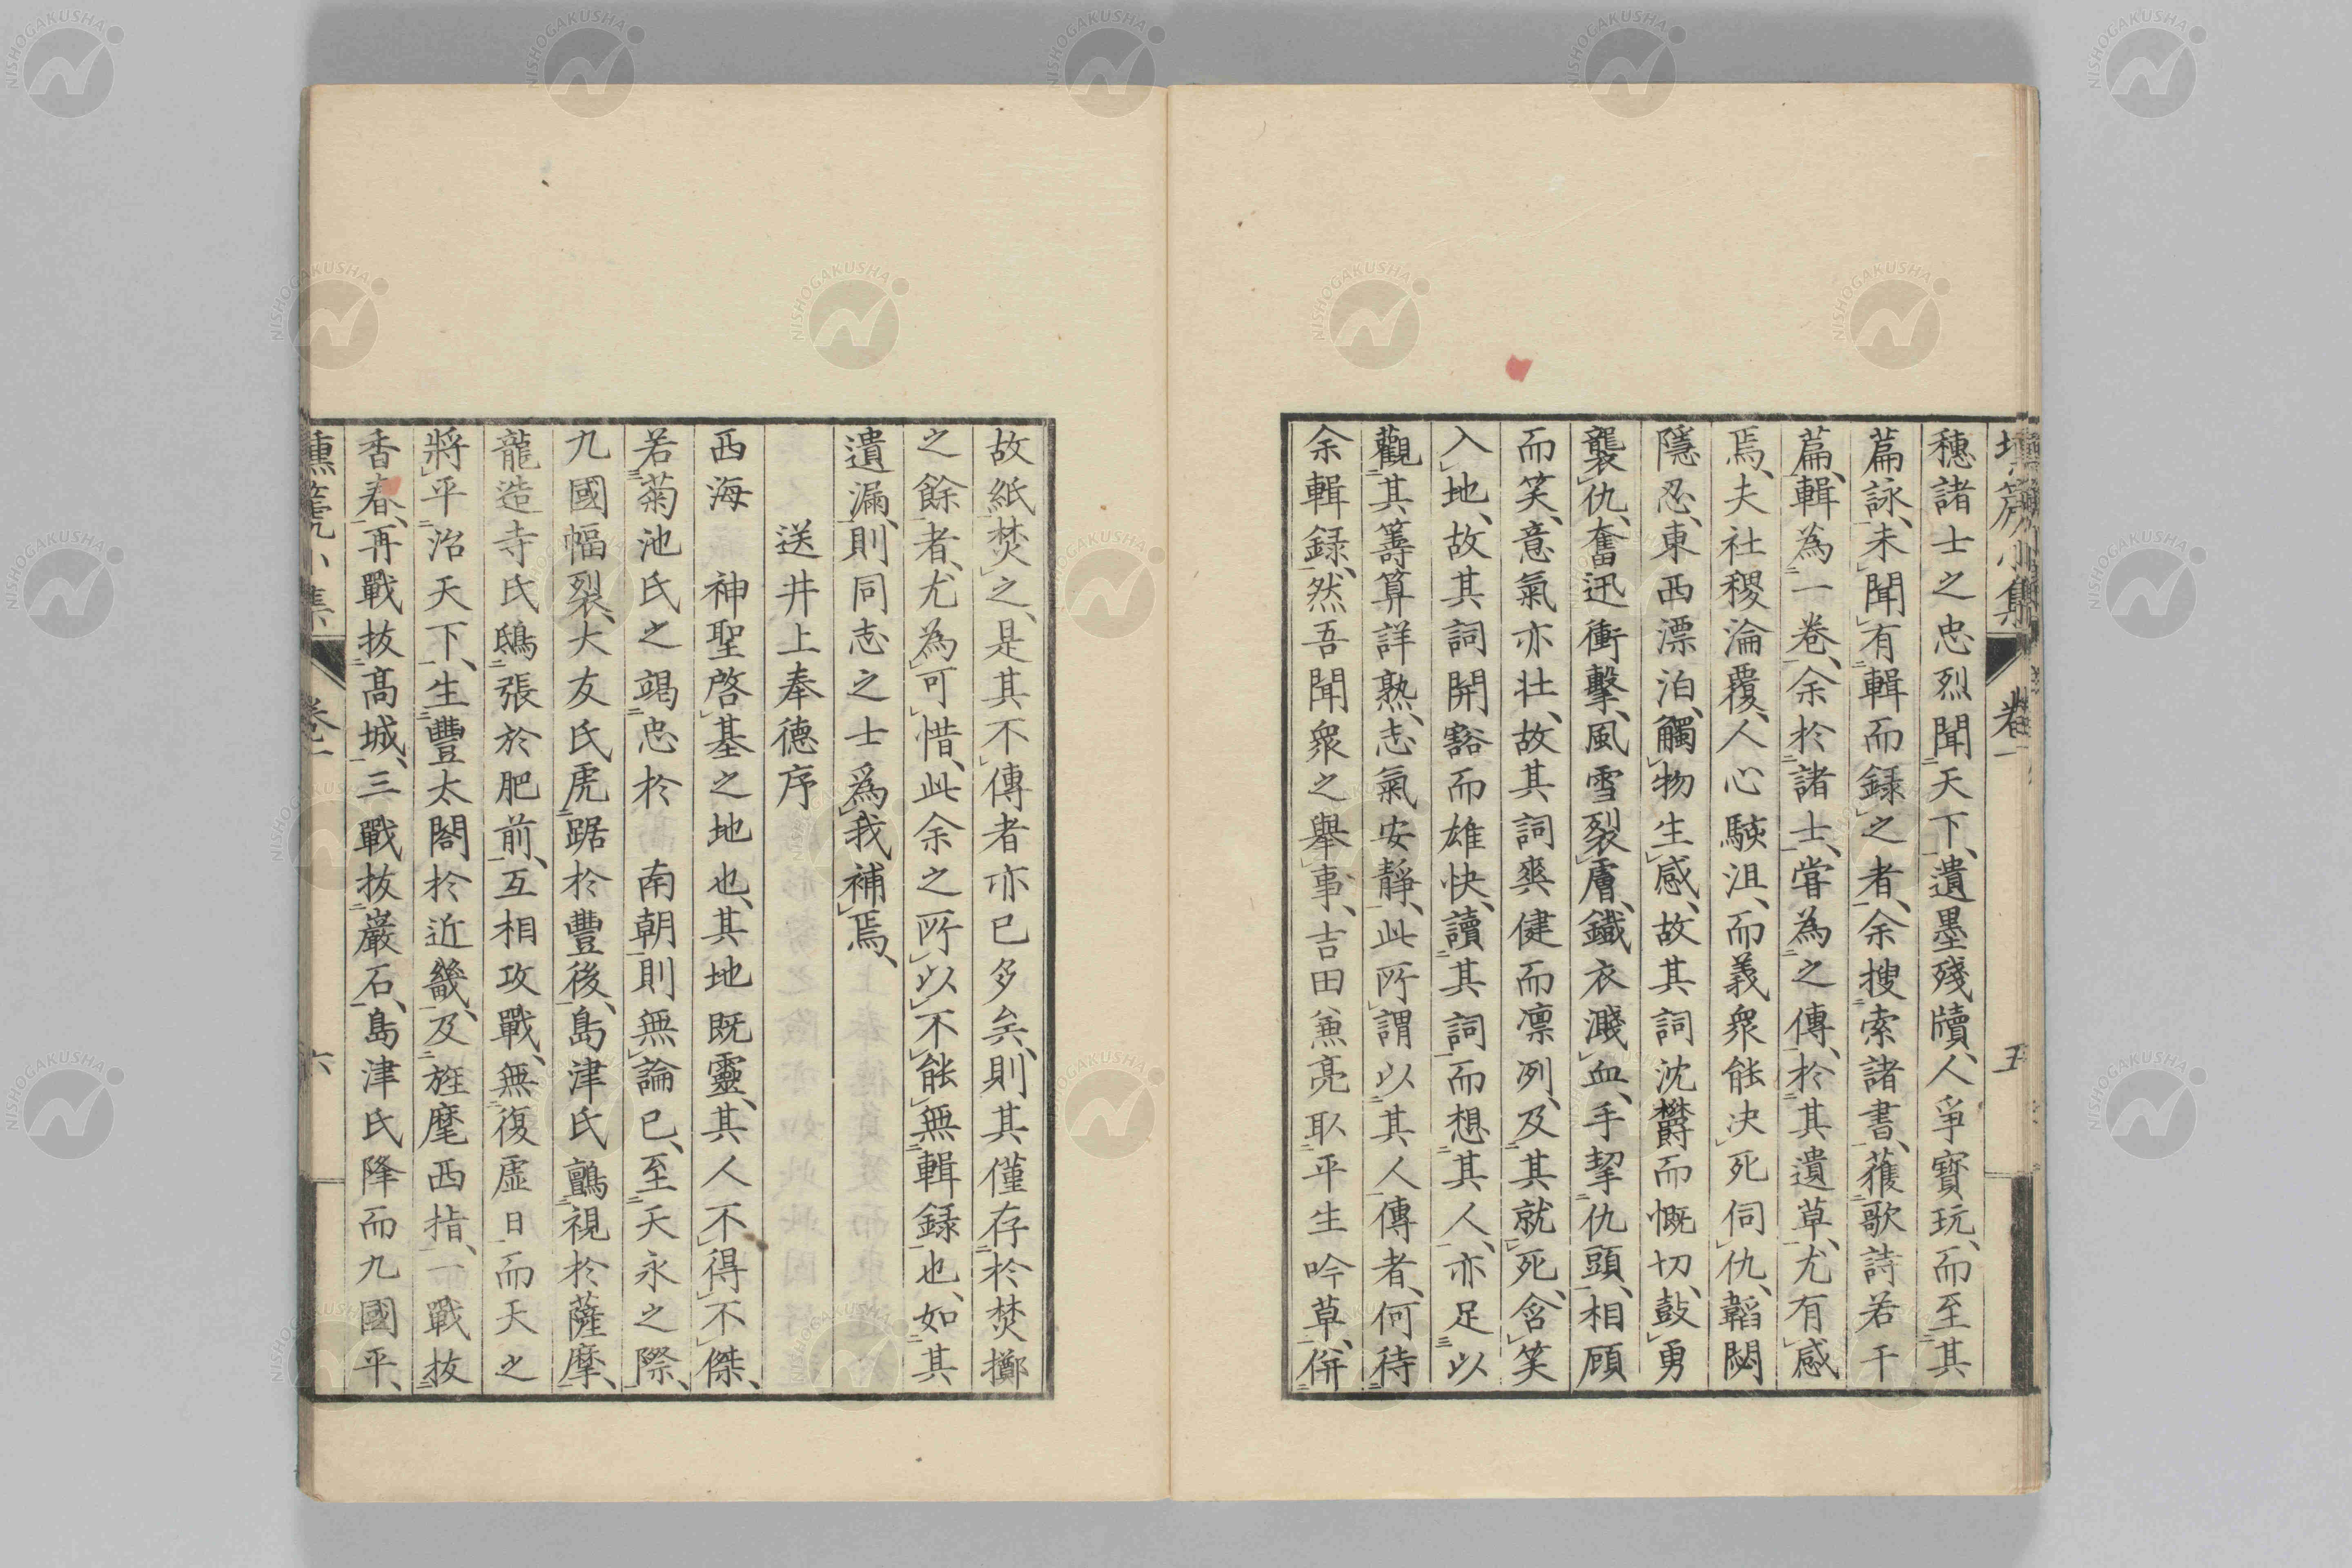 壎篪小集 卷一 五
穗諸士之忠烈聞天下、遺墨殘牘、人爭寶玩、而至其
篇詠、未聞有輯而録之者、余搜索諸書、獲歌詩若干
篇、輯為一卷、余於諸士、嘗為之傳、於其遺草、尤有感
焉、夫社稷淪覆、人心駭沮、而義衆能决死伺仇、韜閟
隱忍、東西漂泊、觸物生感、故其詞沈欝而慨切、鼓勇
襲仇、奮迅衝擊、風雪裂膚、鐵衣濺血、手挈仇頭、相顧
而笑、意氣亦壮、故其詞爽健而凛冽、及其就死、含笑
入地、故其詞開豁而雄快、讀其詞而想其人、亦足以
觀其籌算詳熟、志氣安靜、此所謂以其人傳者、何待
余輯録、然吾聞衆之舉事、吉田兼亮取平生吟草、併
故紙焚之、是其不傳者亦已多矣、則其僅存於焚擲
之餘者、尤為可惜、此余之所以不能無輯録也、如其
遺漏、則同志之士爲我補焉、
送井上奉德序
西海 神聖啓基之地也、其地既靈、其人不得不傑、
若菊池氏之竭忠於 南朝則無論已、至天永之際、
九國幅裂、大友氏虎踞於豐後、島津氏鸇視於薩摩、
龍造寺氏鴟張於肥前、互相攻戰、無復虚日、而天之
將平治天下、生豐太閤於近畿、及旌麾西指、一戰抜
香春、再戰抜髙城、三戰抜巖石、島津氏降而九國平、
壎篪小集 卷一 六
NISHOGAKUSHA